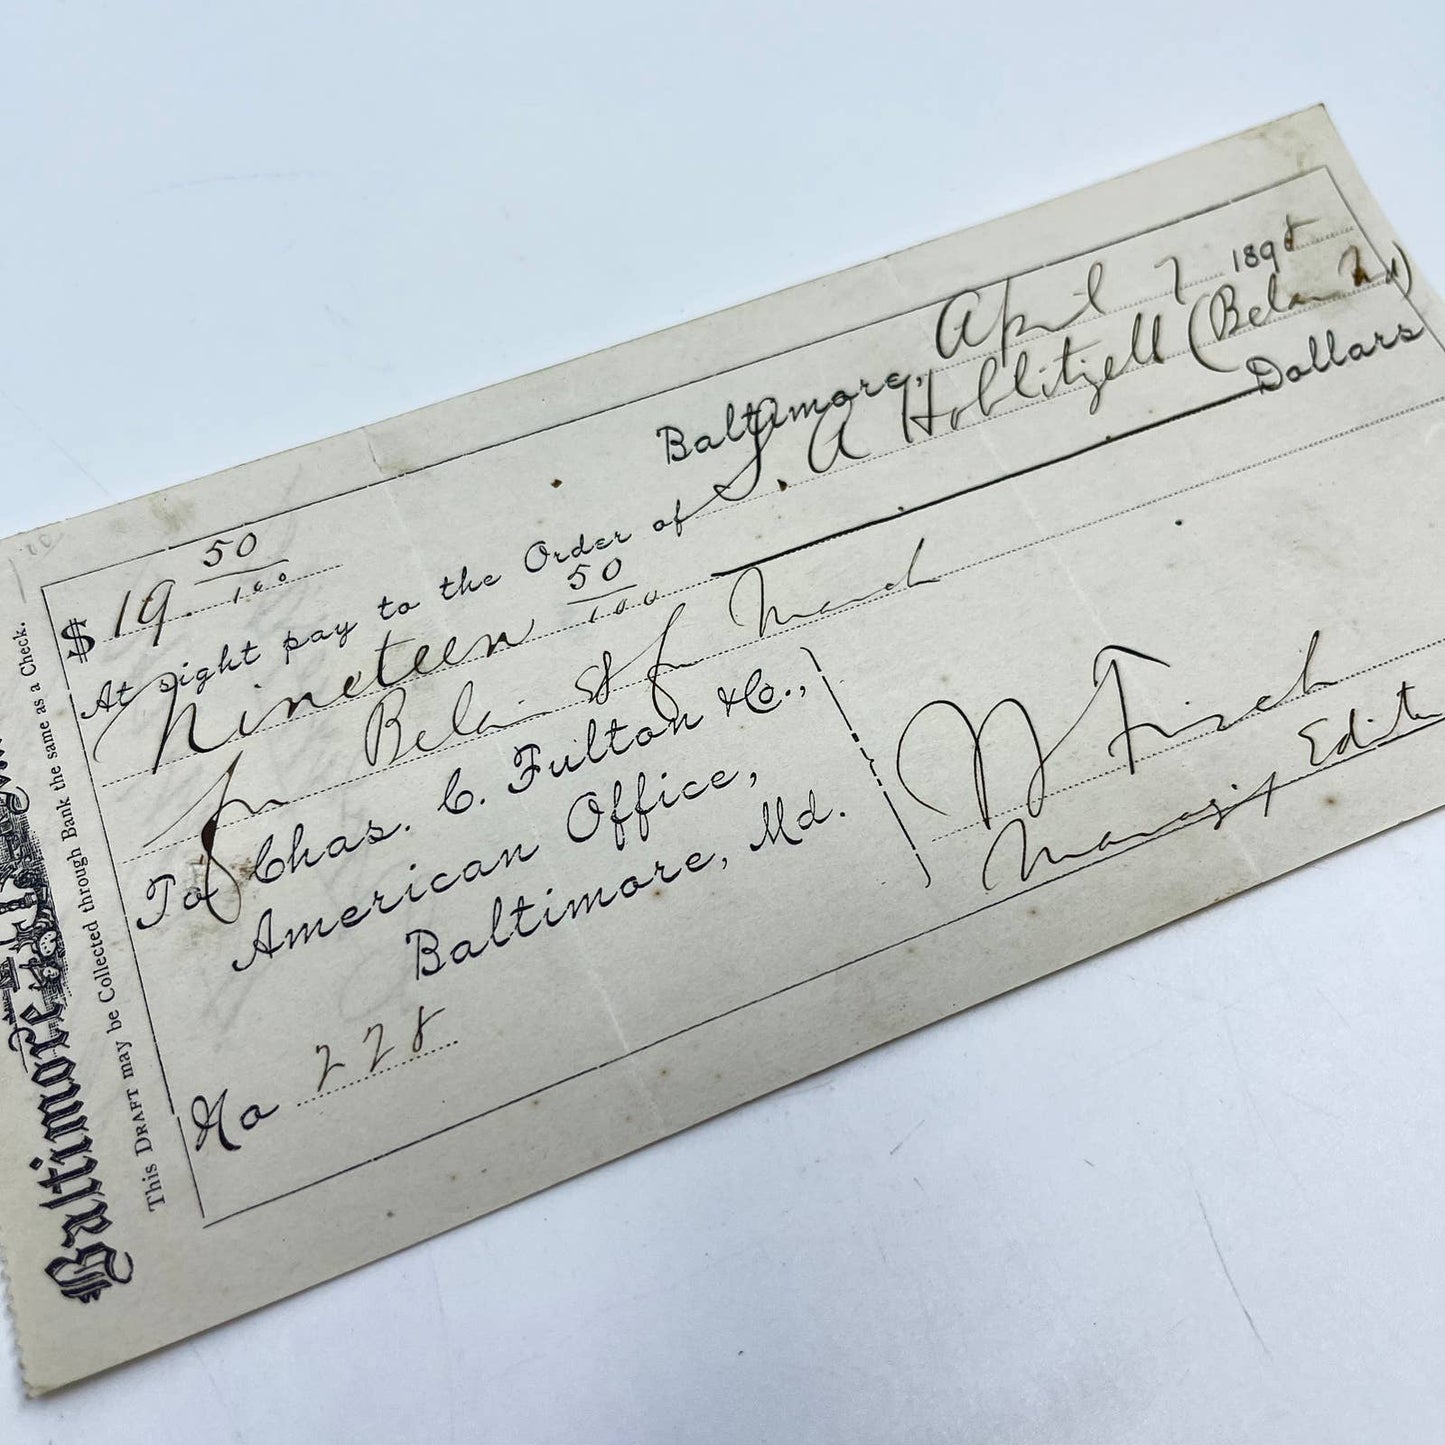 Baltimore, April 7 1898
$ 19. 50/100
At sight pay to the Order of S. A Hoblitzell (Belair Md)
Nineteen 50/100 Dollars
for Belair for March
To Chas. C. Fulton & Co.,
American Office,
Baltimore, Md.
W Fisch
Managing Editor
No 228
Baltimore
This DRAFT may be Collected through Bank the same as a Check.